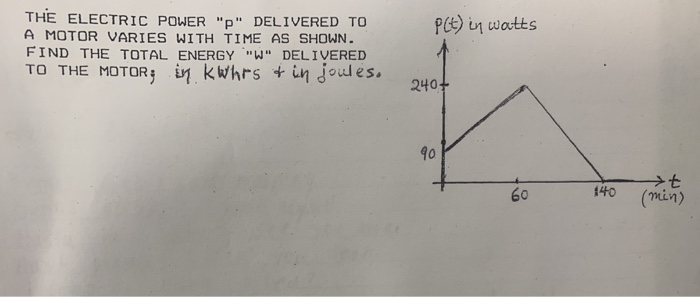 THE ELECTRIC POWER "p" DELIVERED TO
A MOTOR VARIES WITH TIME AS SHOWN.
FIND THE TOTAL ENERGY "W" DELIVERED
TO THE MOTOR; in kwhrs & in joules.
P(t) in watts
240
90
60
140
t
(min)